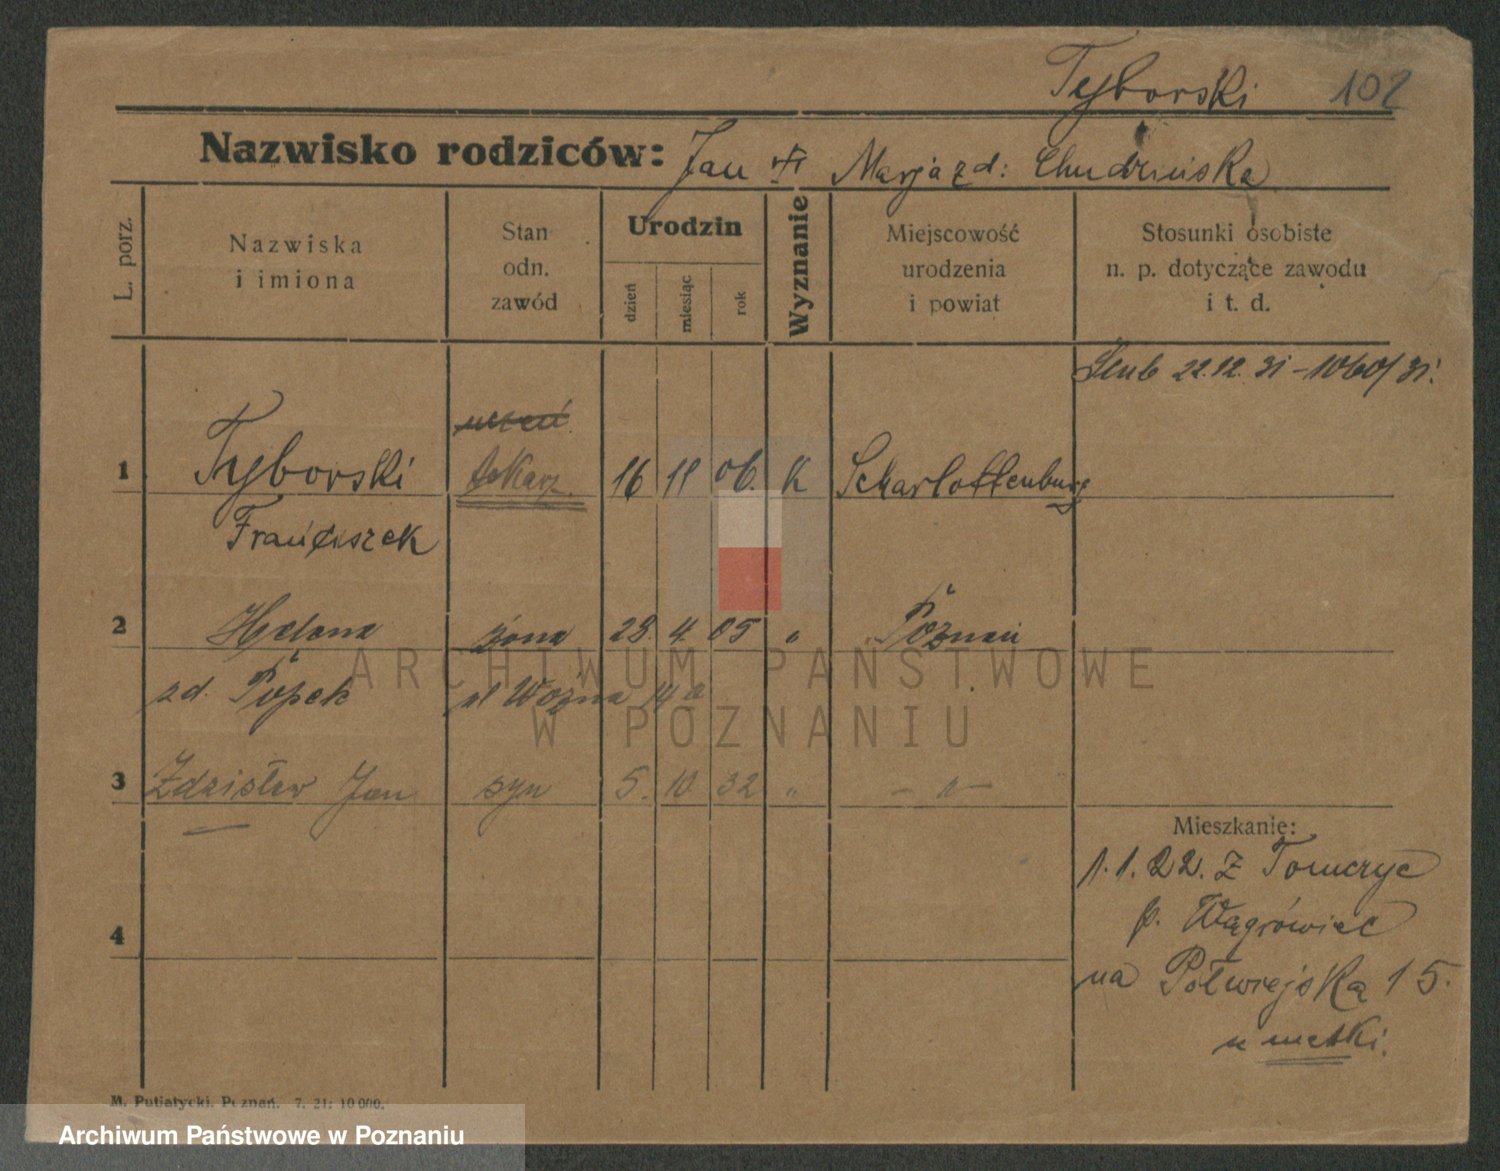 Tyborski 102
Nazwisko rodziców: Jan Marja zd: Chudzińska
L. porz.
Nazwiska
i imiona
Stan
odn.
zawód
Urodzin
dzień
miesiąc
rok
Wyznanie
Miejscowość
urodzenia
i powiat
Stosunki osobiste
n. p. dotyczące zawodu
i t. d.
Ślub 22.12.31 - 1060/31.
uczeń
1 Tyborski tokarz 16 11 06. K Scharlottenburg
Franciszek
2 Helena żona 28. 4. 05 " Poznań
zd. Popek ul Woźna 14a
3 Zdzisław Jan syn 5. 10 32 " - " -
4
Mieszkanie:
1.1.22. z
p. Wągrówiec
na Półwiejską 15.
u matki.
M. Putiatycki. Poznań. 7. 21: 10 000.
ARCHIWUM PAŃSTWOWE
W POZNANIU
Archiwum Państwowe w Poznaniu